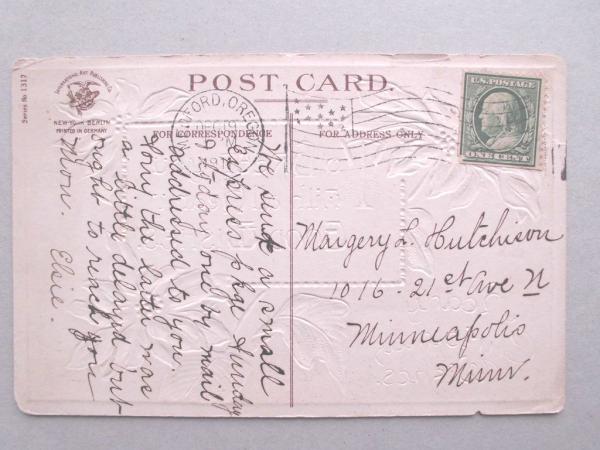 Series No 1317
INTERNATIONAL ART PUBLISHING Co.
NEW YORK BERLIN
PRINTED IN GERMANY
POST CARD.
MEDFORD, OREG.
DEC 19
U.S. POSTAGE
ONE CENT
FOR CORRESPONDENCE
FOR ADDRESS ONLY
We sent a small
Express pkge Sunday
& today one by mail
addressed to you.
Sorry the latter was
a little delayed but
ought to reach you
Mon. Elsie.
Margery L. Hutchison
1016 - 21 st Ave N
Minneapolis
Minn.